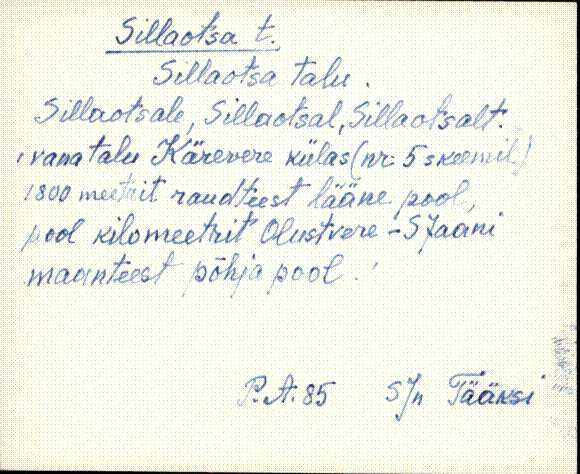 Sillaotsa t.
Sillaotsa talu.
Sillaotsale, Sillaotsal, Sillaotsalt.
, vana talu Kärevere külas (nr. 5 skeemil)
1800 meetrit raudteest lääne pool,
pool kilomeetrit Olustvere - S/Jaani
maanteest põhja pool.
P.A. 85 S/n Tääksi